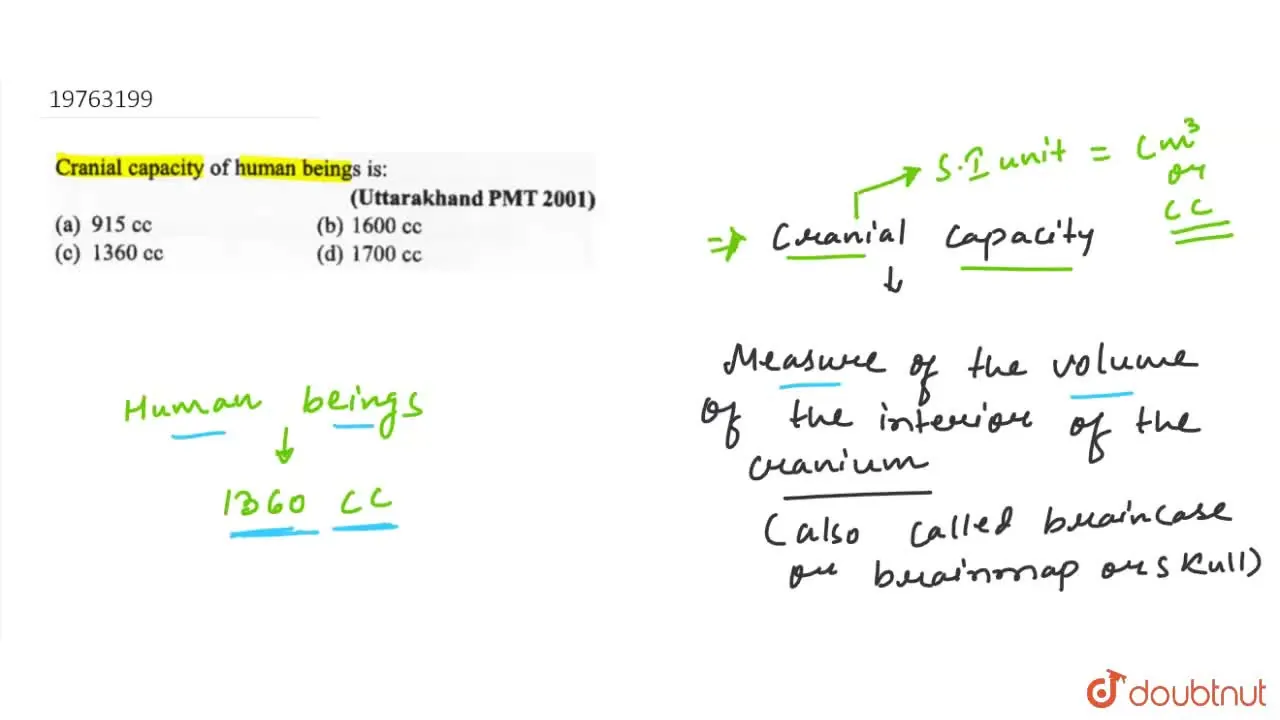 19763199
Cranial capacity of human beings is:
(Uttarakhand PMT 2001)
(a) 915 cc (b) 1600 cc
(c) 1360 cc (d) 1700 cc
Human beings
↓
1360 CC
S.I unit = Cm³
or
CC
⇒ Cranial capacity
↓
Measure of the volume
of the interior of the
cranium
(also called braincase
or brainmap or skull)
doubtnut